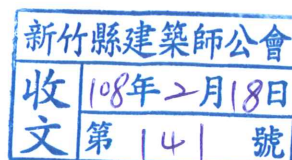 新竹縣建築師公會
收文
108年2月18日
第141號